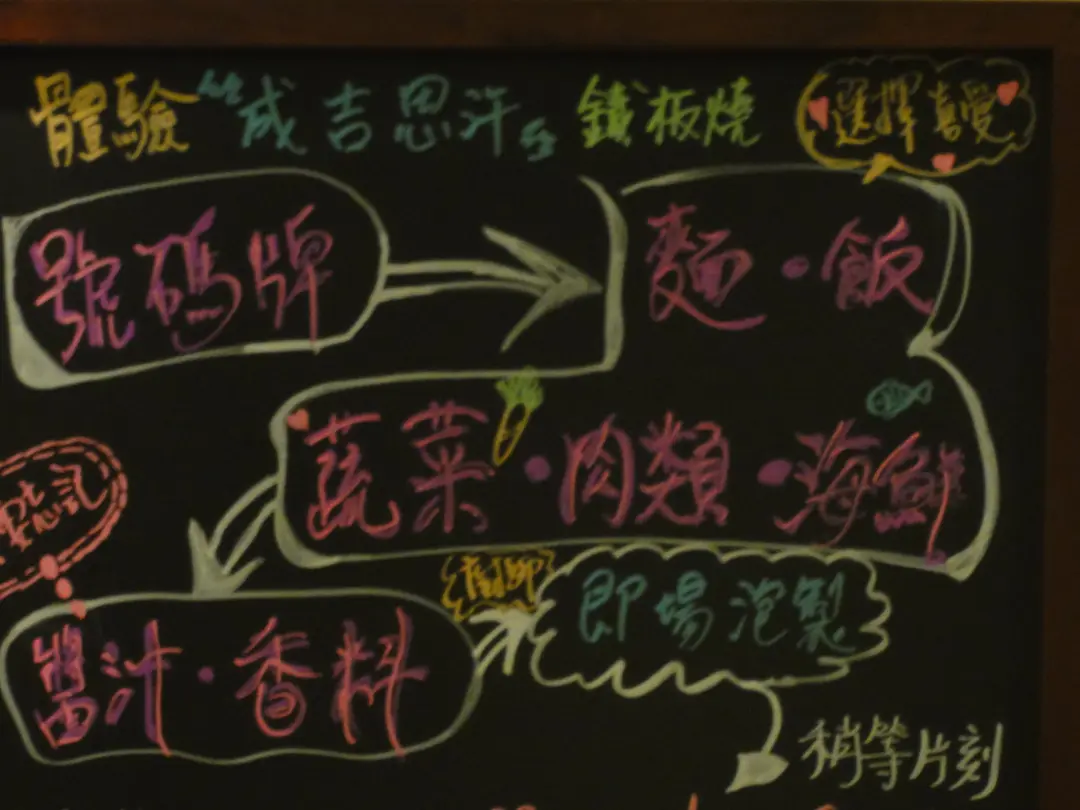 體驗“成吉思汗”鐵板燒
選擇喜愛
號碼牌
麵·飯
蔬菜·肉類·海鮮
忘記
醬汁·香料
廚師
即場泡製
稍等片刻